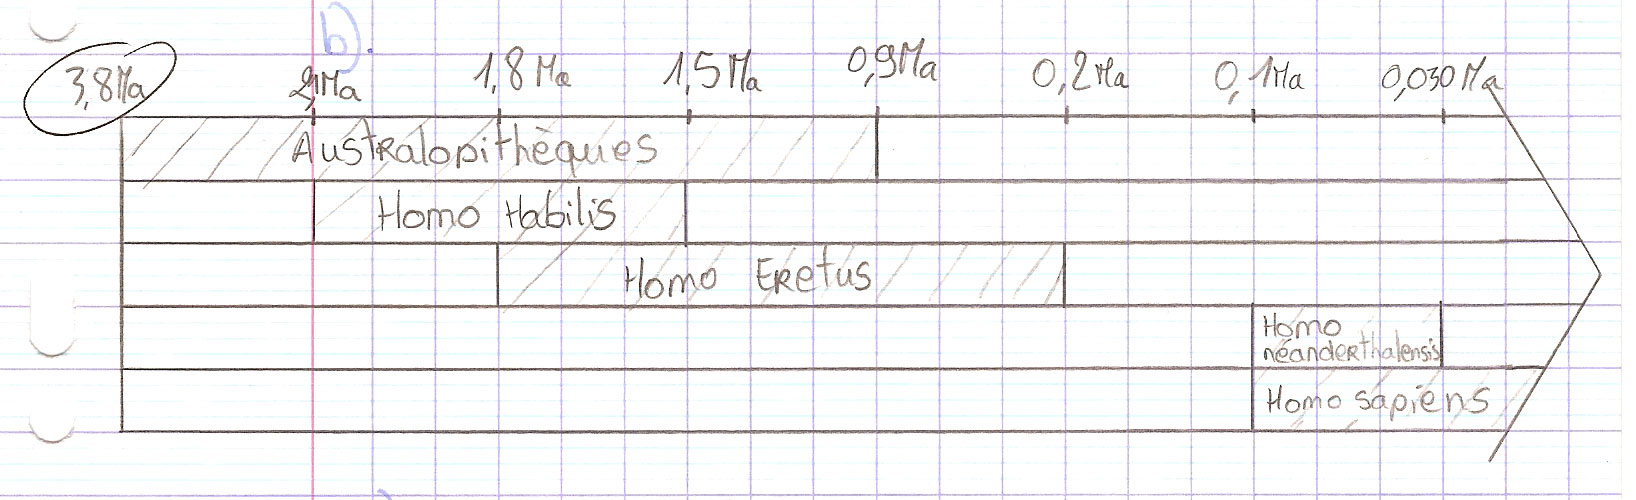 b).
3,8Ma 2,1Ma 1,8 Ma 1,5 Ma 0,9Ma 0,2 Ma 0,1Ma 0,030 Ma
Australopithèques
Homo Habilis
Homo Eretus
Homo
néanderthalensis
Homo sapiens